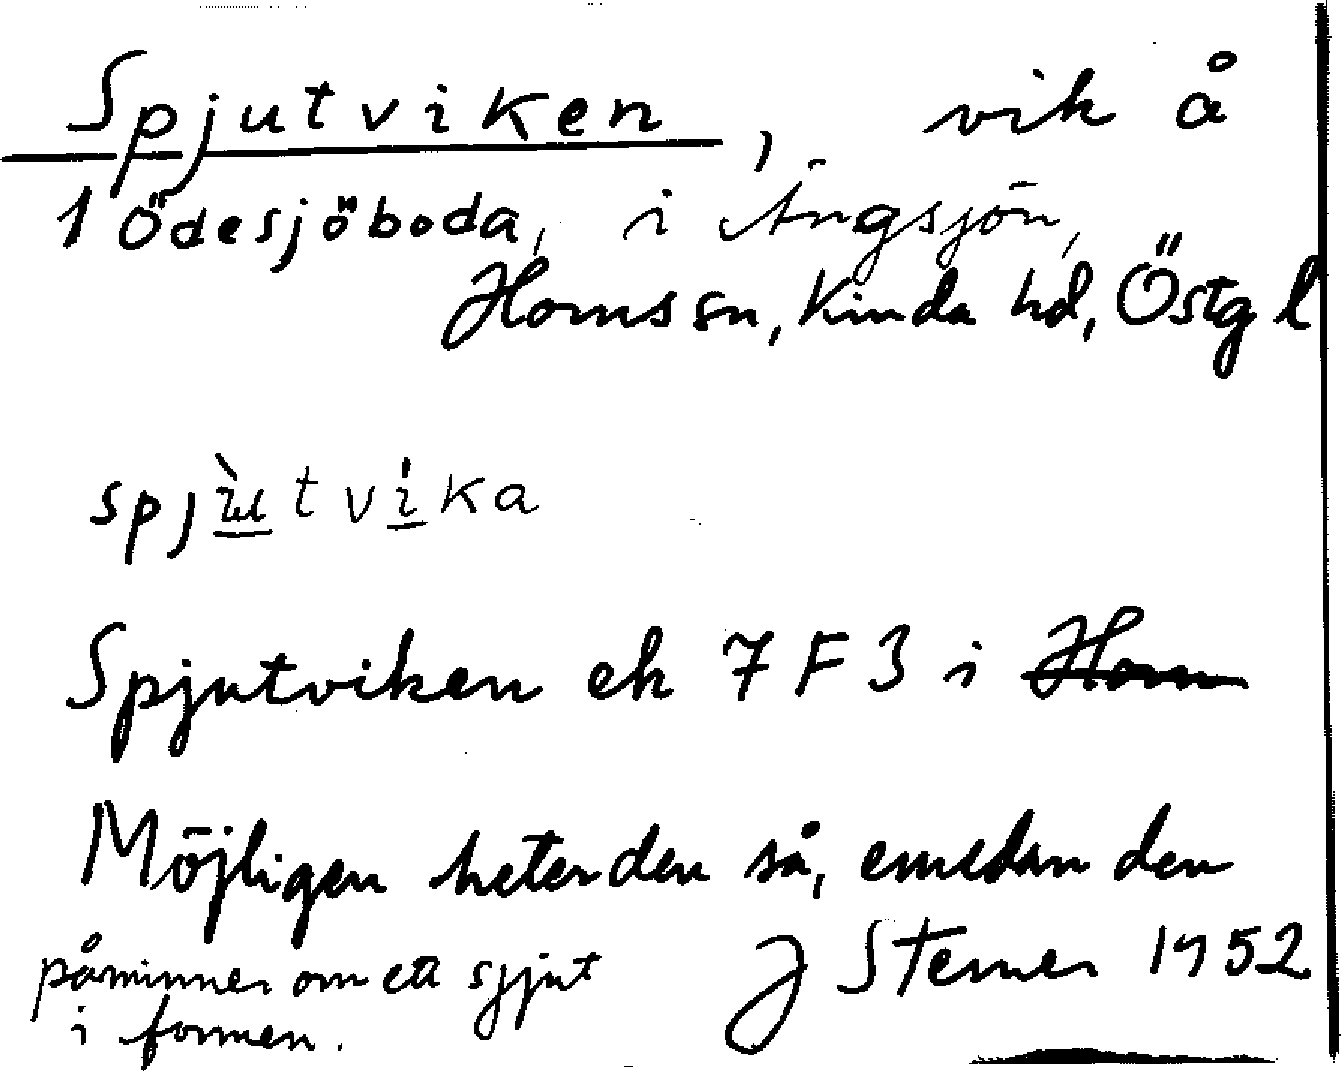 Spjutviken, vik å
1 Ödesjöboda, i Ängsjön,
Horns sn, Kinda hd, Östg l
spj̀utvíka
Spjutviken ek 7 F 3 i Horn
Möjligen heter den så, emedan den
påminner om ett spjut
i formen.
J Sterner 1952